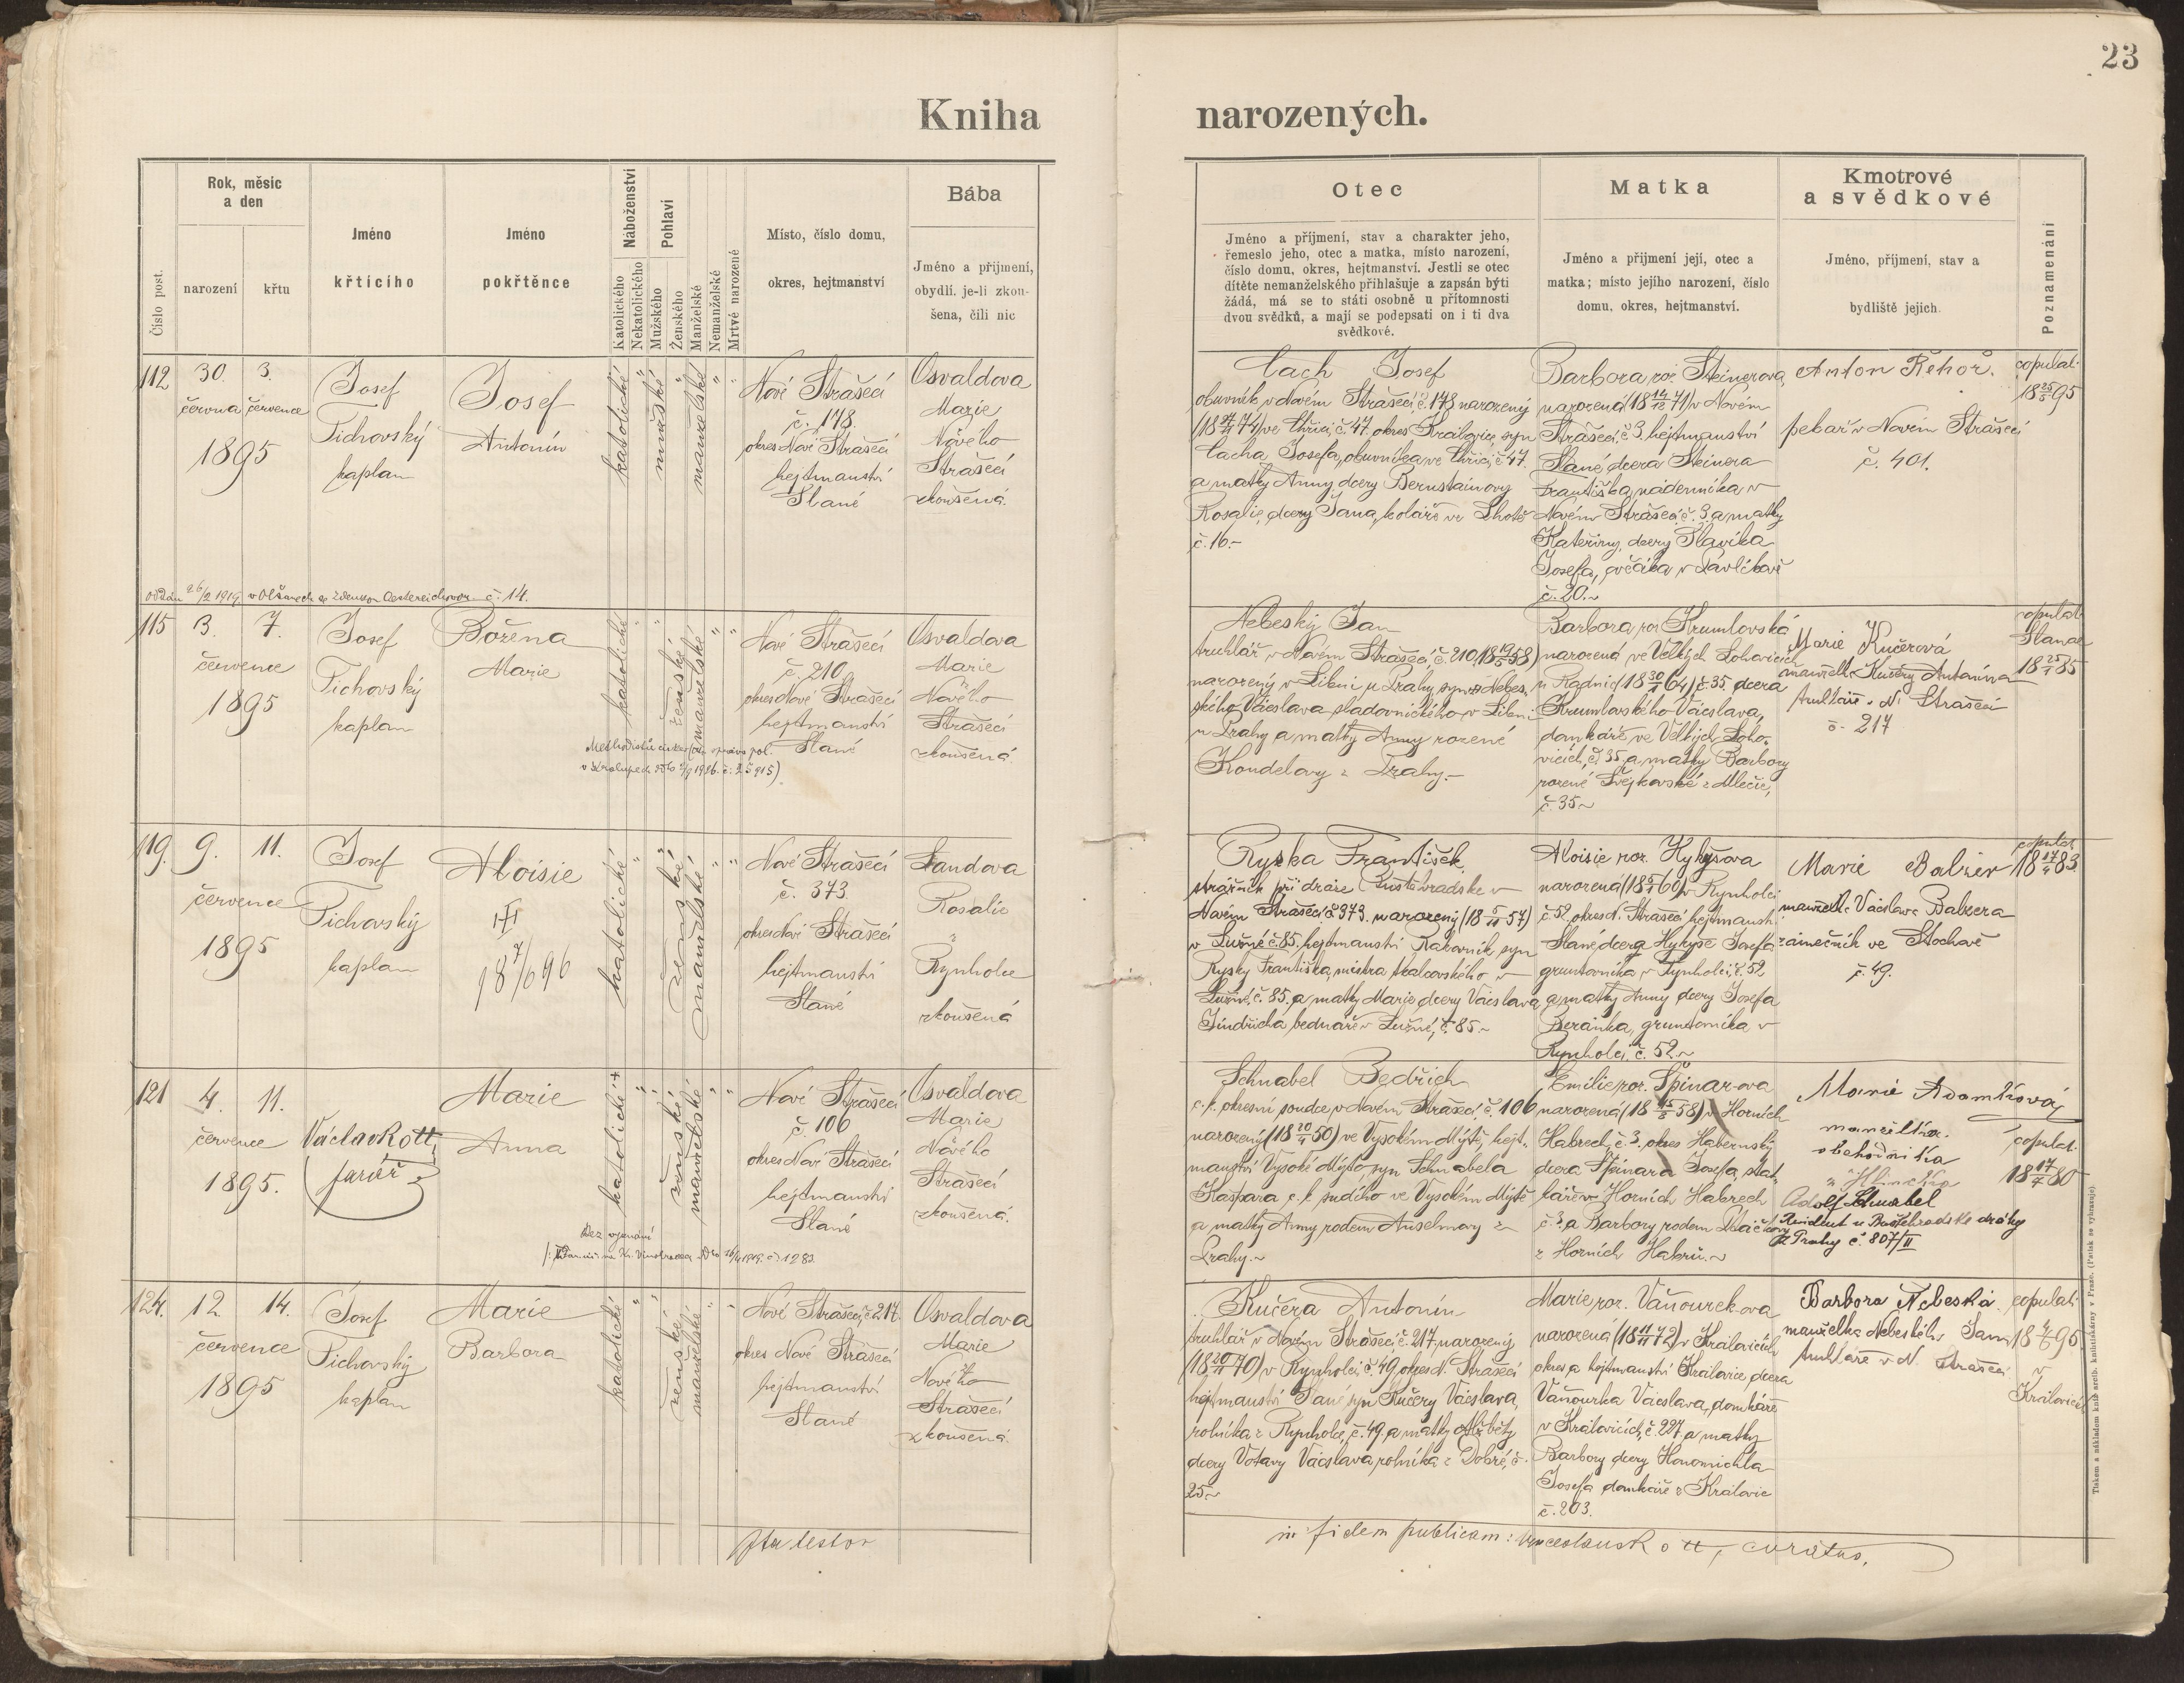 23
Kniha narozených.
Číslo post.
Rok, měsíc a den
narození
křtu
Jméno křticího
Jméno pokřtěnce
Náboženství
Katolického
Nekatolického
Pohlaví
Mužského
Ženského
Manželské
Nemanželské
Mrtvé narozené
Místo, číslo domu,
okres, hejtmanství
Bába
Jméno a přijmení,
obydlí. je-li zkou-
šena, čili nic
Otec
Jméno a příjmení, stav a charakter jeho,
řemeslo jeho, otec a matka, místo narození,
číslo domu, okres, hejtmanství. Jestli se otec
dítěte nemanželského přihlašuje a zapsán býti
žádá, má se to státi osobně u přítomnosti
dvou svědků, a mají se podepsati on i ti dva
svědkové.
Matka
Jméno a přijmení její, otec a
matka; místo jejího narození, číslo
domu, okres, hejtmanství.
Kmotrové
a svědkové
Jméno, příjmení, stav a
bydliště jejich.
Poznamenání
112
30. 3.
června července
1895
Josef
Tichovský
kaplan
Josef
Antonín
katolické
mužské
manželské
Nové Strašecí
č. 178.
okres Nové Strašecí
hejtmanství
Slané
Osvaldova
Marie
z Nového
Strašecí
zkoušená.
Cach Josef
obuvník v Novém Strašecí, č. 178 narozený
ve Chříci, č. 47. okres Kralovice, syn
Cacha Josefa, obuvníka ve Chříci, č. 47.
a matky Anny dcery Bernstainovy
Rosalie, dcery Jana, koláře ve Lhotě
č. 16.-
Barbora roz. Steinerova
narozená (18 71) v Novém
Strašecí, č. 3. hejtmanství
Slané, dcera Steinera
Františka, nádenníka v
Novém Strašecí, č. 3. a matky
Kateřiny, dcery Slavíka
Josefa, ovčáka v Pavlíkově
č. 20.~
Anton Řehoř.
pekař v Novém Strašecí
č. 401.
copulati
18 95
oddán 26/2 1919 v Olšanech se Zdenkou č. 14.
115
3. 7.
července
1895
Josef
Tichovský
kaplan
Božena
Marie
katolické
ženské
manželské
Nové Strašecí
č. 210.
okres Nové Strašecí
hejtmanství
Slané
Osvaldova
Marie
z Nového
Strašecí
zkoušená
Nebeský Jan
truhlář v Novém Strašecí, č. 210,
narozený v Libni u Prahy, syn Nebes-
ského Václava sladovnického v Libni
u Prahy a matky Anny rozené
Koudelovy z Prahy.-
Barbora roz. Krumlovská
narozená ve Velkých Lohovicích
u Radnic (18 30 64) č. 35. dcera
Krumlovského Václava,
domkáře ve Velkých Loho-
vicích, č. 35. a matky Barbory
rozené Švejkovské z Mlečic,
č. 35~
Marie Kučerová
manželka Kučery Antonína
truhláře v N. Strašecí
č. 217
copulati
Slanae
18 25 85
119.
9. 11.
července
1895
Josef
Tichovský
kaplan
Aloisie
18 7/6 96
katolické
ženské
manželské
Nové Strašecí
č. 373.
okres Nové Strašecí
hejtmanství
Slané
Landova
Rosalie
z
Rynholce
zkoušená
Ryska František,
strážník při dráze Buštěhradské v
Novém Strašecí č. 373. narozený
v Lužné č. 85. hejtmanství Rakovník, syn
Rysky Františka, mistra tkalcovského v
Lužné, č. 85. a matky Marie, dcery Václava
Jindřicha bednáře v Lužné, č. 85.~
Aloisie roz. Hykyšova
narozená v Rynholci
č. 52. okres N. Strašecí hejtmanství
Slané, dcera Hykyše Josefa
gruntovníka v Rynholci, č. 52
a matky Anny dcery Josefa
Beránka, gruntovníka v
Rynholci, č. 52.~
Marie Balzer
manželka Václava Balzera
zámečník ve Stochově
č. 49.
copulati
18 17 83
121
4. 11.
července
1895.
Václav Kott,
farář
Marie
Anna
katolické +
ženské
manželské
Nové Strašecí
č. 106
okres Nové Strašecí
hejtmanství
Slané
Osvaldova
Marie
z Nového
Strašecí
zkoušená.
Bez vyznání
Schnabel Bedřich
c. k. okresní soudce v Novém Strašecí č. 106
narozený (18 20 50) ve Vysokém Mýtě, hejt-
manství Vysoké Mýto, syn Schnabela
Kašpara c. k. sudího ve Vysokém Mýtě
a matky Anny rodem Anselmovy z
Prahy.~
Emilie roz. Špinarova
narozená (18 15 58) v Horních
Habrech, č. 3. okres Habernský
dcera Špinara Josefa, stat-
káře v Horních Habrech
č. 3, a Barbory rodem
z Horních Habrů.~
Marie Adamková
manželka
obchodníka
Adolf Schnabel
Revident u Buštěhradské dráhy
z Prahy č. 807/II
copulati
18 17 80
124.
12. 14.
července
1895
Josef
Tichovský
kaplan
Marie
Barbora
katolické
ženské
manželské
Nové Strašecí, č. 217.
okres Nové Strašecí
hejtmanství
Slané
Osvaldova
Marie
z Nového
Strašecí
zkoušená.
Kučera Antonín
truhlář v Novém Strašecí č. 217, narozený
(18 20 70) v Rynholci, č. 49, okres N. Strašecí
hejtmanství Slané, syn Kučery Václava,
rolníka z Rynholce, č. 49. a matky Alžběty
dcery Votavy Václava, rolníka z Dobré, č.
25.~
Marie roz. Vaňourekova
narozená (18 11 72) v Kralovicích
okres a hejtmanství Kralovice, dcera
Vaňourka Václava, domkáře
v Kralovicích, č. 227. a matky
Barbory dcery Honomichla
Josefa domkáře z Kralovic
č. 203.
Barbora Nebeská.
manželka Nebeského Jana
truhláře v N. Strašecí
copulati
18 95
v
Kralovicích
Ita testor
in fidem publicam: Venceslaus Kott, curatus.
Tiskem a nákladem kníž. arcib. knihtiskárny v Praze. (Patisk se vyhrazuje)